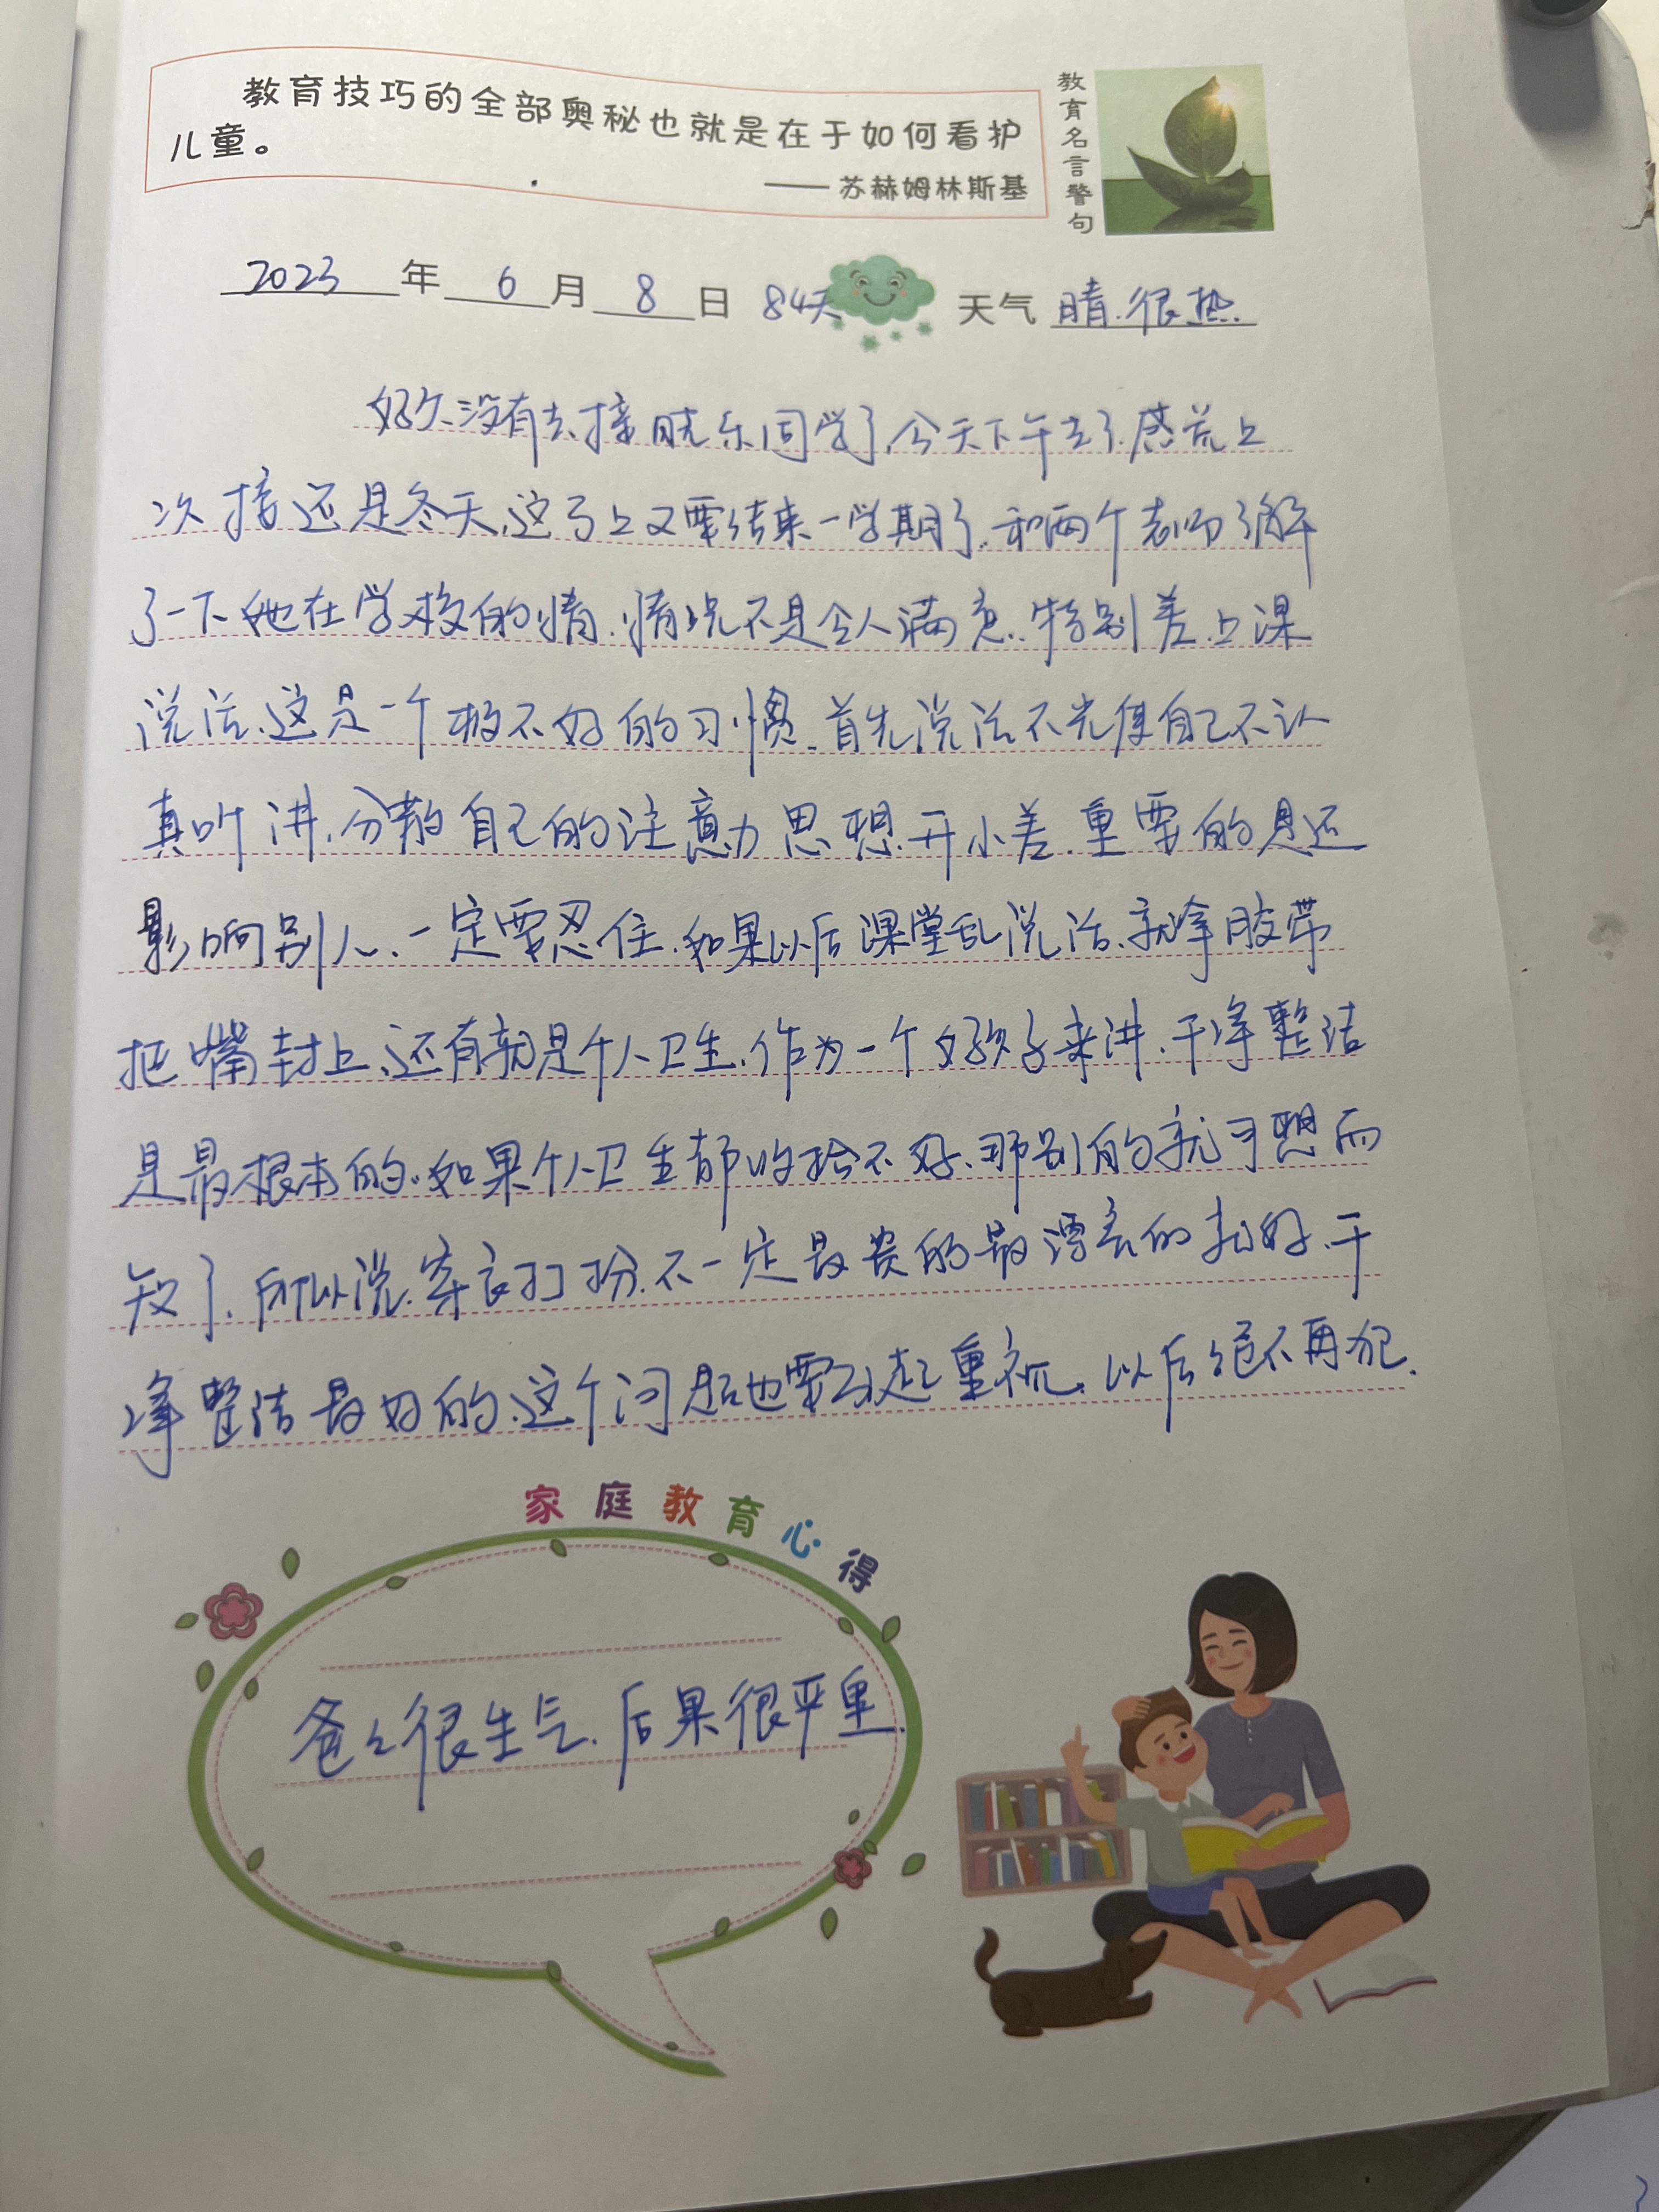 教育技巧的全部奥秘也就是在于如何看护
儿童。
——苏赫姆林斯基
教育名言警句
2023年6月8日 84天 天气 晴.很热.
好久没有去接晓乐同学了,今天下午去了.感觉上
次接还是冬天,这马上又要结束一学期了.和两个老师了解
了一下她在学校的情.情况不是令人满意.特别差.上课
说话、这是一个极不好的习惯.首先说话不光使自己不认
真听讲,分散自己的注意力 思想开小差.重要的是还
影响别人、一定要忍住.如果以后课堂乱说话.就拿胶带
把嘴封上、还有就是个人卫生.作为一个女孩子来讲、干净整洁
是最根本的.如果个人卫生都收拾不好、那别的就可想而
知了.所以说.穿衣打扮.不一定最贵的最漂亮的就好.干
净整洁最好的、这个问题也要引起重视.以后绝不再犯.
家庭教育心得
爸爸很生气.后果很严重.